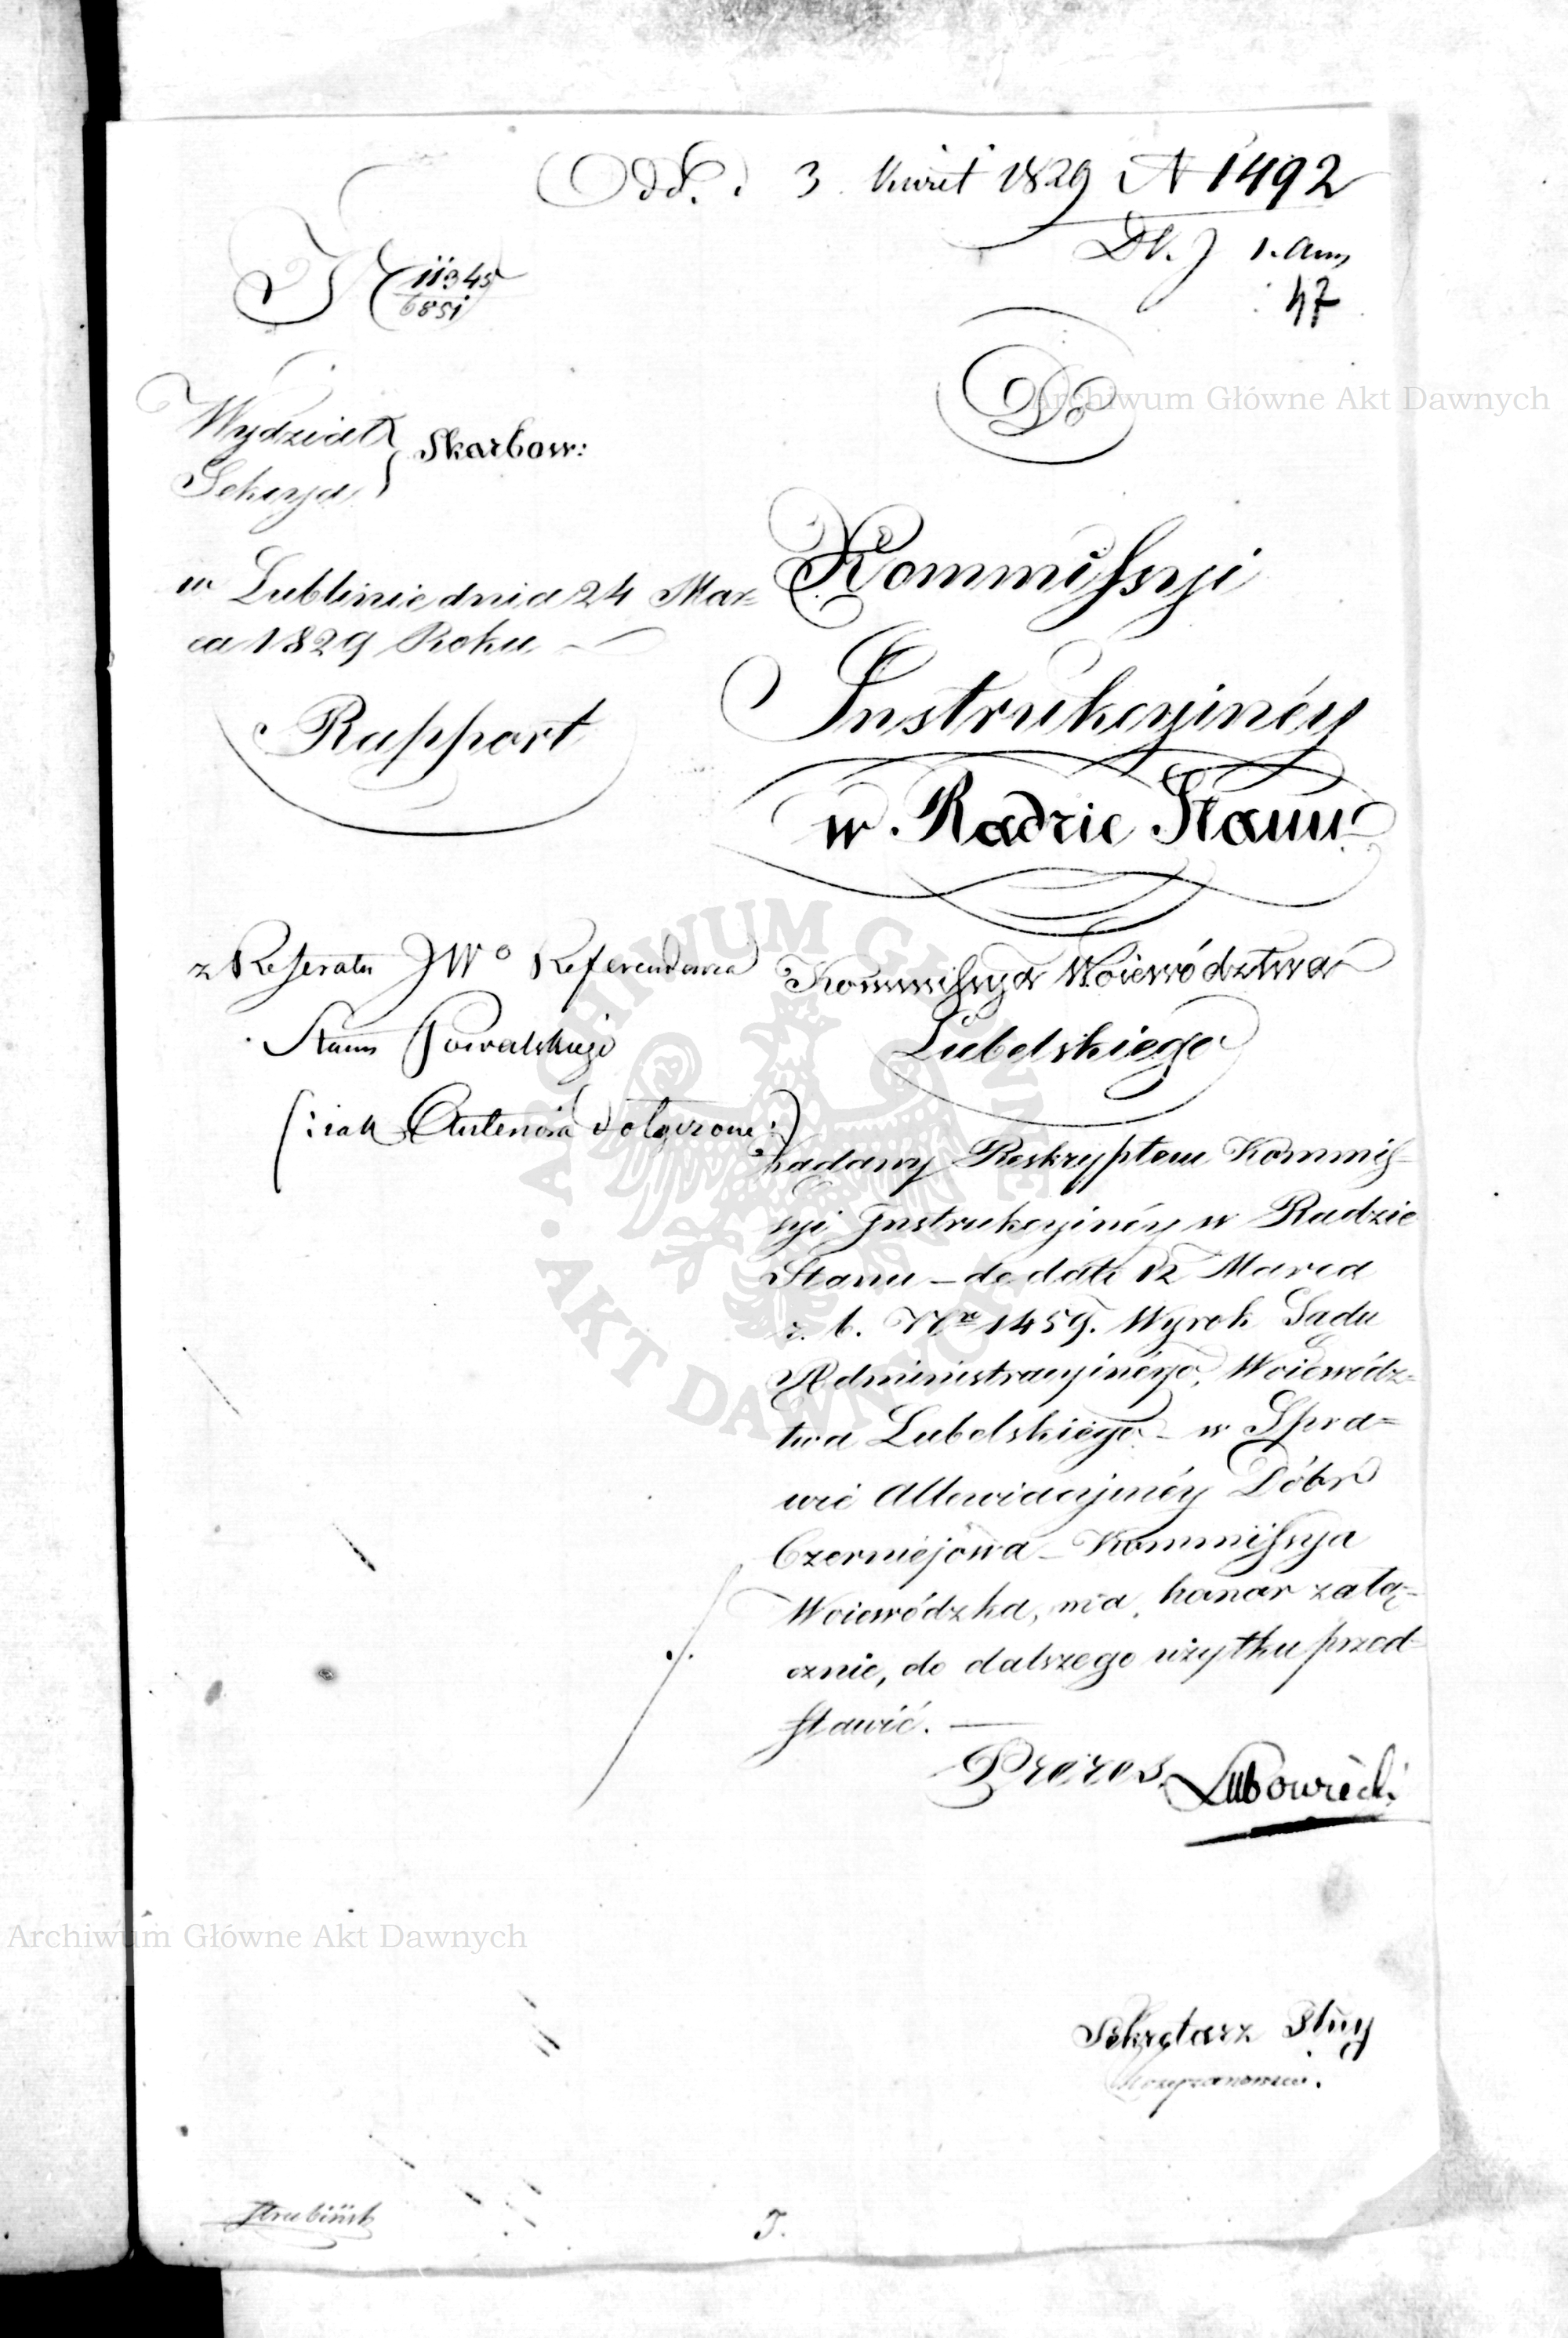 Odd. d. 3 Kwiet 1829 N 1492
Dz. J 1. Ann
47
N 11345
6851
Do
Wydział
Sekcya
Skarbow:
w Lublinie dnia 24 Mar=
ca 1829 Roku
Rapport
Kommissyi
Instrukcyinéy
w Radzie Stanu
z Referatu JWo Referendarza
Stanu Kowalskiego
(: iak Autenocia dołączone :)
Kommissya Woiewództwa
Lubelskiego
Żądany Reskryptem Kommis-
syi Instrukcyinéy w Radzie
Stanu – de dato 12 Marca
r. b. Nro 1459. Wyrok Sądu
Administracyinégo, Woiewódz=
twa Lubelskiégo – w Spra=
wie Allewiacyinéy Dóbr
Czerniéjowa – Kommissya
Woiewódzka, ma honor załą=
cznie, do dalszego użytku przed-
stawić. —
Prezes Lubowiecki
Sekretarz Jlny
Strubińsk
J.
Archiwum Główne Akt Dawnych
ARCHIWUM GŁÓWNE
AKT DAWNYCH
Archiwum Główne Akt Dawnych